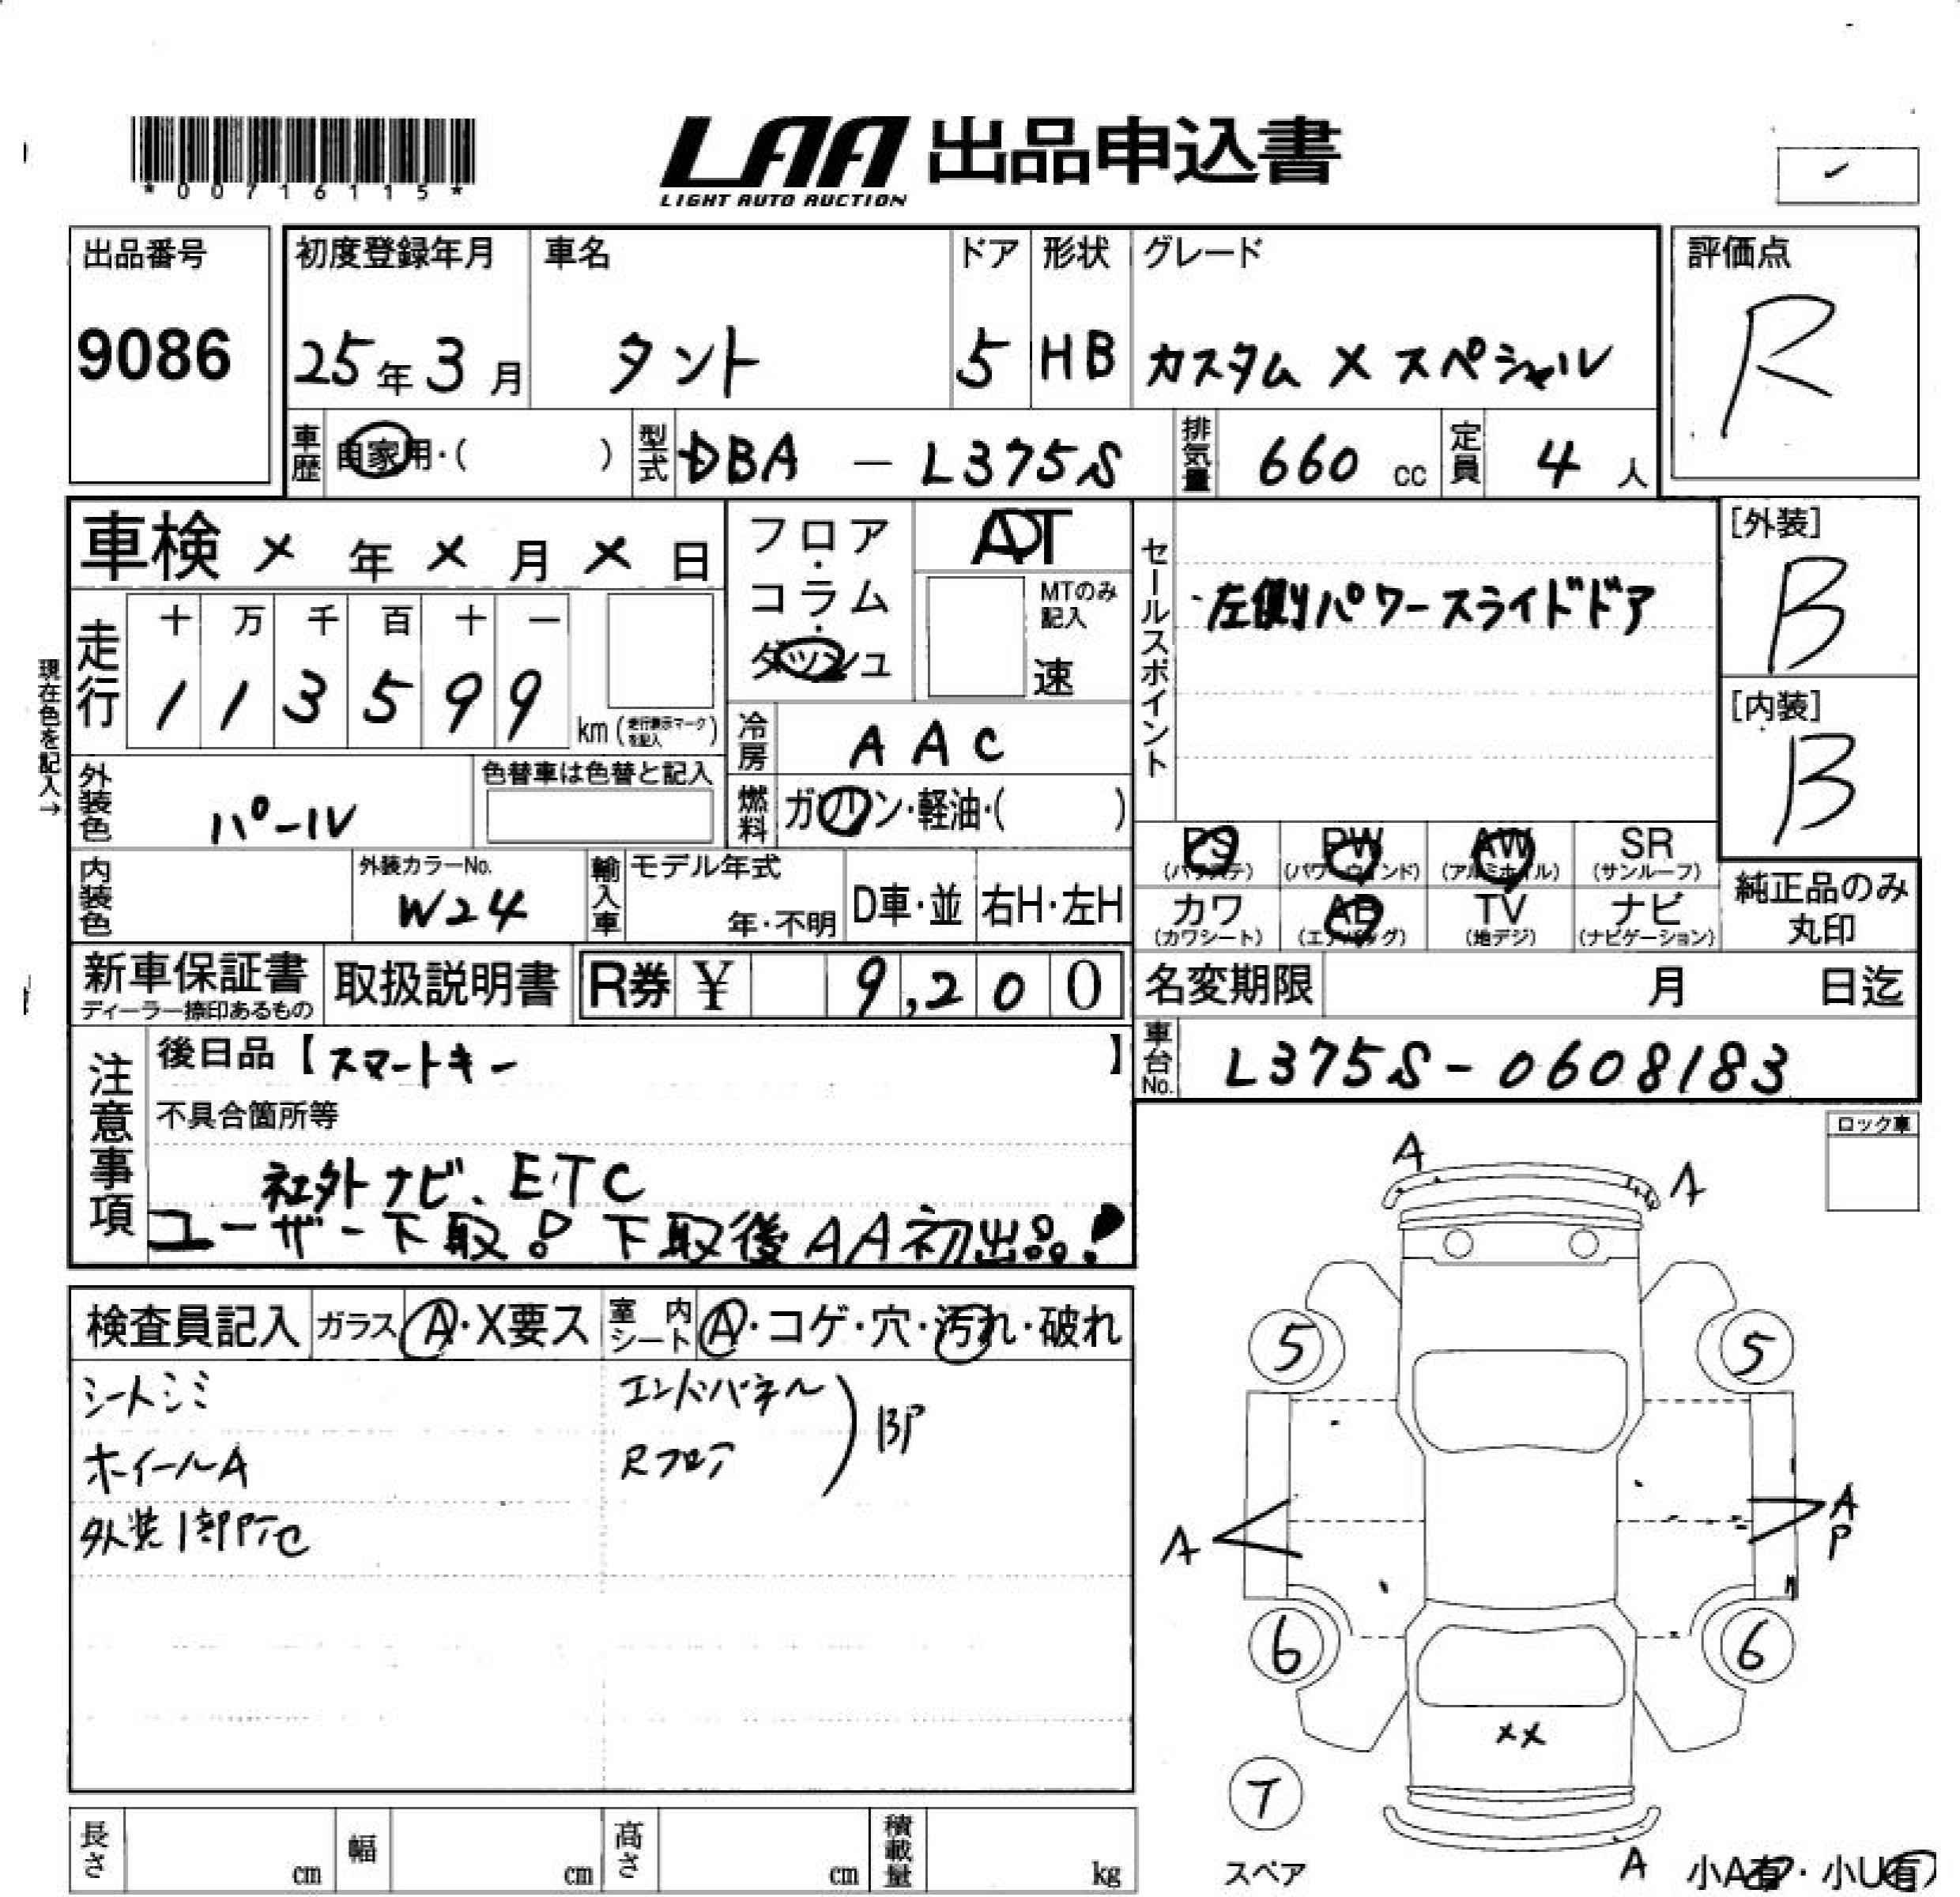 *00716115*
LAA 出品申込書
LIGHT AUTO AUCTION
出品番号
9086
初度登録年月
25年3月
車名
タント
ドア
5
形状
HB
グレード
カスタム X スペシャル
評価点
R
車歴
自家用・( )
型式
DBA - L375S
排気量
660 cc
定員
4 人
車検 × 年 × 月 × 日
フロア・コラム・ダッシュ
AT
MTのみ記入
速
セールスポイント
・左側パワースライドドア
[外装]
B
[内装]
B
現在色を記入→
走行
十 万 千 百 十 一
1 1 3 5 9 9
km (走行表示マークを記入)
冷房
AAC
外装色
パール
色替車は色替と記入
燃料
ガソリン・軽油・( )
内装色
外装カラーNo.
W24
輸入車
モデル年式
年・不明
D車・並
右H・左H
PS
(パワステ)
PW
(パワーウィンド)
AW
(アルミホイル)
SR
(サンルーフ)
カワ
(カワシート)
AB
(エアバッグ)
TV
(地デジ)
ナビ
(ナビゲーション)
純正品のみ
丸印
新車保証書
ディーラー捺印あるもの
取扱説明書
R券 ¥ 9,200
名変期限 月 日迄
車台No.
L375S-0608183
注意事項
後日品【スマートキー】
不具合箇所等
社外ナビ、ETC
ユーザー下取! 下取後AA初出品!
ロック車
検査員記入
ガラス
A・X要ス
室内シート
A・コゲ・穴・汚れ・破れ
シートシミ
ホイールA
外装1部所C
エンドパネル
Rフロア
A
A
5
5
A
A
P
6
6
××
T
スペア
A
小A有・小U有
長さ cm
幅 cm
高さ cm
積載量 kg